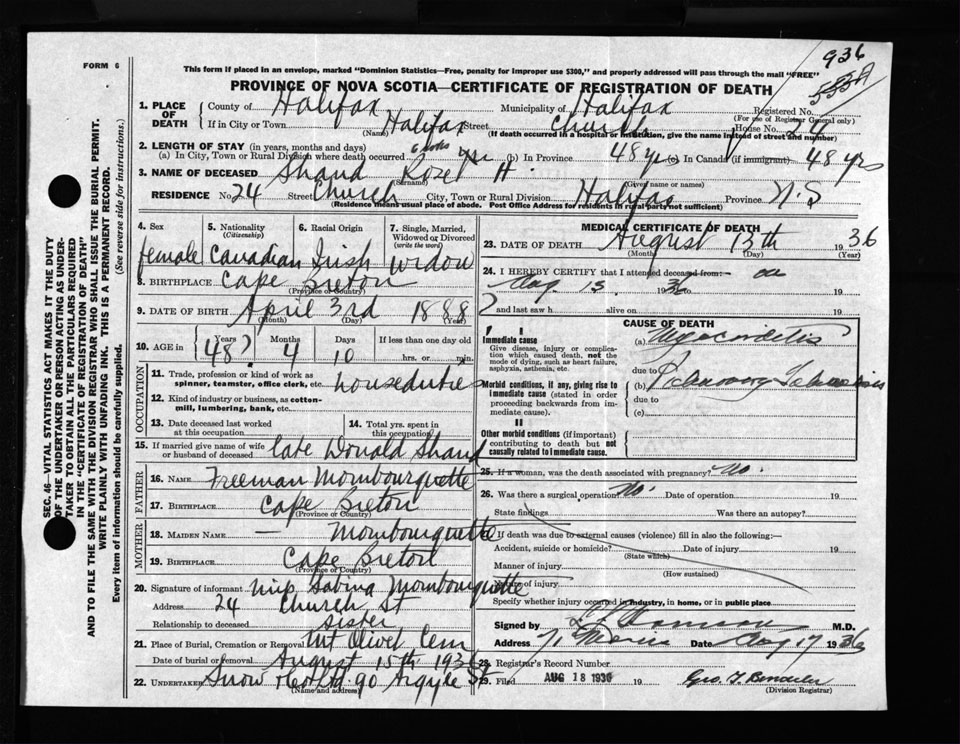 936
FORM 6
This form if placed in an envelope, marked "Dominion Statistics—Free, penalty for improper use $300," and properly addressed will pass through the mail "FREE"
553A
PROVINCE OF NOVA SCOTIA—CERTIFICATE OF REGISTRATION OF DEATH
SEC. 46—VITAL STATISTICS ACT MAKES IT THE DUTY
OF THE UNDERTAKER OR PERSON ACTING AS UNDER-
TAKER TO OBTAIN ALL THE PARTICULARS REQUIRED
IN THE "CERTIFICATE OF REGISTRATION OF DEATH"
AND TO FILE THE SAME WITH THE DIVISION REGISTRAR WHO SHALL ISSUE THE BURIAL PERMIT.
WRITE PLAINLY WITH UNFADING INK. THIS IS A PERMANENT RECORD.
Every item of information should be carefully supplied. (See reverse side for instructions.)
1. PLACE OF DEATH County of Halifax Municipality of Halifax Registered No.
(For use of Registrar General only)
If in City or Town Halifax Street Church House No. 24
(Name) (If death occurred in a hospital or institution, give the name instead of street and number)
2. LENGTH OF STAY (in years, months and days)
(a) In City, Town or Rural Division where death occurred (b) In Province 48 yrs (c) In Canada (if immigrant) 48 yrs
3. NAME OF DECEASED Shand Rozel H.
(Surname) (Given name or names)
RESIDENCE No 24 Street Church City, Town or Rural Division Halifax Province N.S
(Residence means usual place of abode. Post Office Address for residents in rural parts not sufficient)
4. Sex 5. Nationality (Citizenship) 6. Racial Origin 7. Single, Married, Widowed or Divorced (write the word)
female Canadian Irish widow
8. BIRTHPLACE Cape Breton
(Province or Country)
9. DATE OF BIRTH April 3rd 1888
(Month) (Day) (Year)
10. AGE in Years Months Days If less than one day old
48? 4 10 hrs. or min.
OCCUPATION
11. Trade, profession or kind of work as spinner, teamster, office clerk, etc. houseduties
12. Kind of industry or business, as cotton-mill, lumbering, bank, etc.
13. Date deceased last worked at this occupation 14. Total yrs. spent in this occupation
15. If married give name of wife or husband of deceased late Donald Shand
FATHER
16. NAME Freeman Mombourquette
17. BIRTHPLACE Cape Breton
(Province or Country)
MOTHER
18. MAIDEN NAME — Mombourquette
19. BIRTHPLACE Cape Breton
(Province or Country)
20. Signature of informant Miss Sabina Mombourquette
Address 24 Church St
Relationship to deceased sister
21. Place of Burial, Cremation or Removal Mt Olivet Cem
Date of burial or removal August 15th 1936
22. UNDERTAKER Snow & Co Ltd 90 Argyle St.
(Name and address)
MEDICAL CERTIFICATE OF DEATH
23. DATE OF DEATH August 13th 1936
(Month) (Day) (Year)
24. I HEREBY CERTIFY that I attended deceased from:— on
Aug 13. 1936 19
and last saw h alive on 19
CAUSE OF DEATH
I
Immediate cause
Give disease, injury or complication which caused death, not the mode of dying, such as heart failure, asphyxia, asthenia, etc.
(a) Myocarditis
due to
Morbid conditions, if any, giving rise to immediate cause (stated in order proceeding backwards from immediate cause).
(b) Pulmonary Tuberculosis
due to
(c)
II
Other morbid conditions (if important) contributing to death but not causally related to immediate cause.
25. If a woman, was the death associated with pregnancy? No.
26. Was there a surgical operation? No. Date of operation 19
State findings Was there an autopsy?
27. If death was due to external causes (violence) fill in also the following:—
Accident, suicide or homicide? Date of injury 19
(State which)
Manner of injury
(How sustained)
Nature of injury
Specify whether injury occurred in industry, in home, or in public place
Signed by M.D.
Address Date Aug 17 1936
28. Registrar's Record Number
29. Filed AUG 18 1936
(Division Registrar)